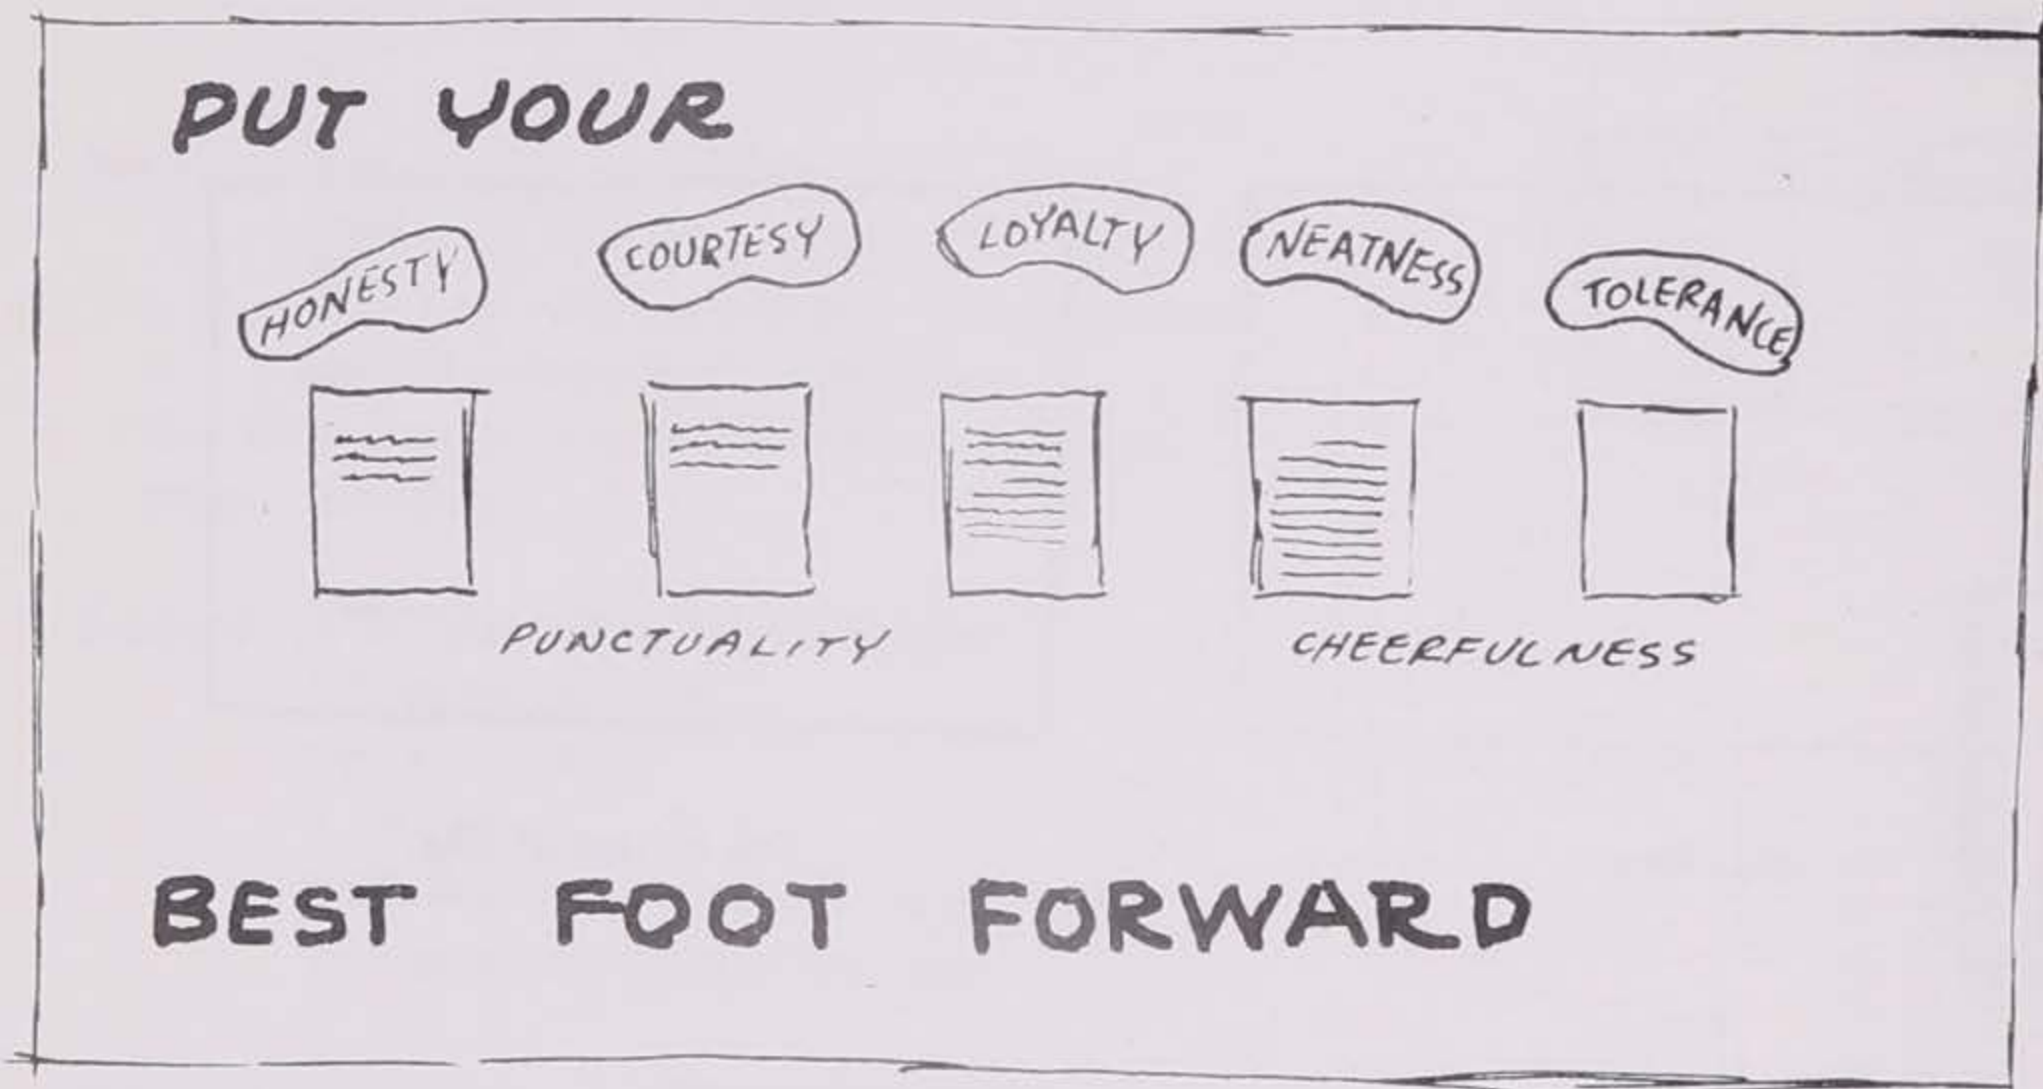 PUT YOUR
HONESTY
COURTESY
LOYALTY
NEATNESS
TOLERANCE
PUNCTUALITY
CHEERFULNESS
BEST FOOT FORWARD